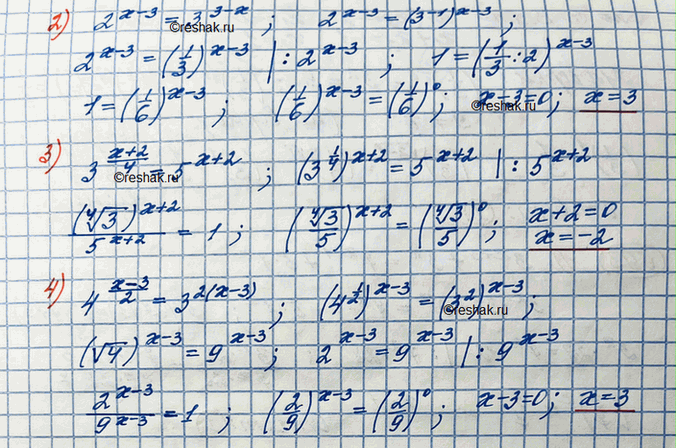 2) 2^(x-3) = 3^(3-x) ; 2^(x-3) = (3^(-1))^(x-3) ;
©reshak.ru
2^(x-3) = (1/3)^(x-3) | : 2^(x-3) ; 1 = (1/3 : 2)^(x-3)
1 = (1/6)^(x-3) ; (1/6)^(x-3) = (1/6)^0 ; x-3=0 ; x=3
©reshak.ru
3) 3^((x+2)/4) = 5^(x+2) ; (3^(1/4))^(x+2) = 5^(x+2) | : 5^(x+2)
©reshak.ru
(∜3)^(x+2)/5^(x+2) = 1 ; (∜3/5)^(x+2) = (∜3/5)^0 ; x+2=0
x=-2
4) 4^((x-3)/2) = 3^(2(x-3)) ; (4^(1/2))^(x-3) = (3^2)^(x-3) ;
©reshak.ru
(√4)^(x-3) = 9^(x-3) ; 2^(x-3) = 9^(x-3) | : 9^(x-3)
2^(x-3)/9^(x-3) = 1 ; (2/9)^(x-3) = (2/9)^0 ; x-3=0 ; x=3